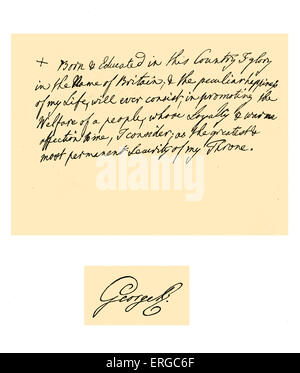 + Born & Educated in this Country I glory
in the Name of Britain; & the peculiar happiness
of my Life, will ever consist, in promoting the
Welfare of a people, whose Loyalty & warm
affection to me, I consider, as the greatest &
most permanent Security of my Throne.
alamy
George R.
alamy stock photo
ERGC6F
www.alamy.com